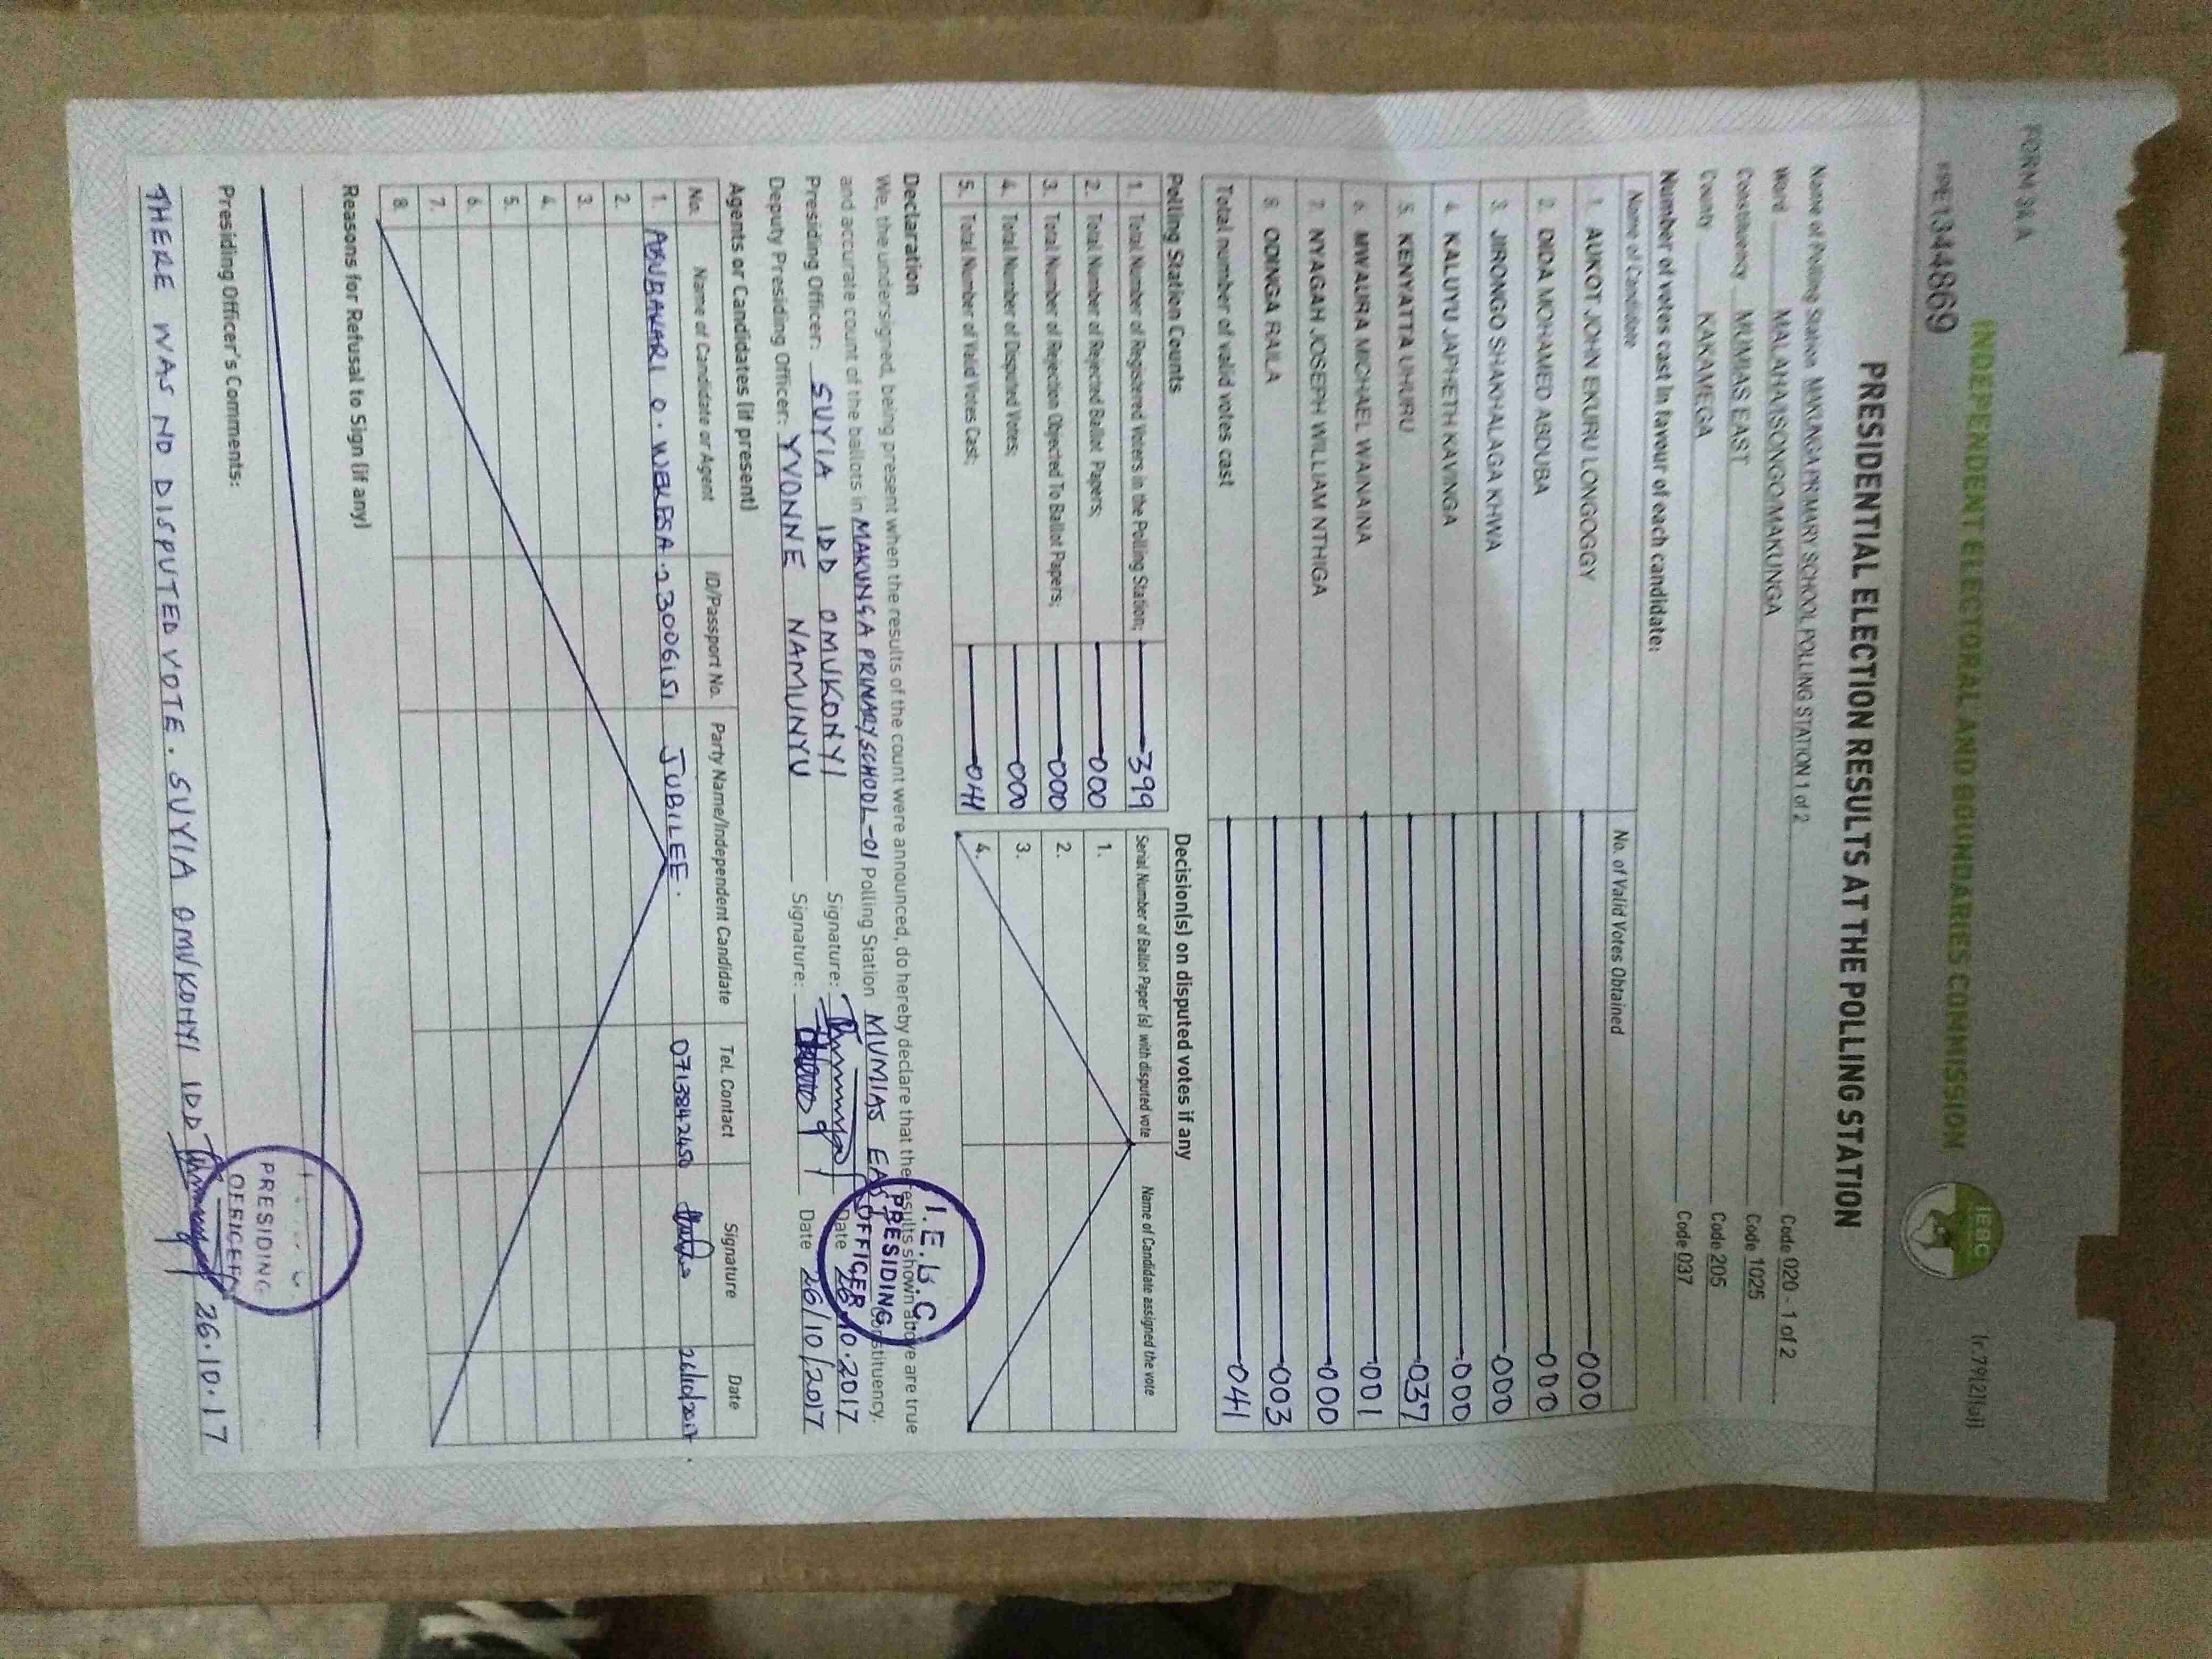 FORM 34 A
INDEPENDENT ELECTORAL AND BOUNDARIES COMMISSION
IEBC
(r.79(2)(a))
PRE1344869
PRESIDENTIAL ELECTION RESULTS AT THE POLLING STATION
Name of Polling Station MAKUNGA PRIMARY SCHOOL POLLING STATION 1 of 2 Code 020 - 1 of 2
Ward MALAHA/ISONGO/MAKUNGA Code 1025
Constituency MUMIAS EAST Code 205
County KAKAMEGA Code 037
Number of votes cast in favour of each candidate:
Name of Candidate No. of Valid Votes Obtained
1. AUKOT JOHN EKURU LONGOGGY 000
2. DIDA MOHAMED ABDUBA 000
3. JIRONGO SHAKHALAGA KHWA 000
4. KALUYU JAPHETH KAVINGA 000
5. KENYATTA UHURU 037
6. MWAURA MICHAEL WAINAINA 001
7. NYAGAH JOSEPH WILLIAM NTHIGA 000
8. ODINGA RAILA 003
Total number of valid votes cast 041
Polling Station Counts Decision(s) on disputed votes if any
1. Total Number of Registered Voters in the Polling Station; 399
2. Total Number of Rejected Ballot Papers; 000
3. Total Number of Rejection Objected To Ballot Papers; 000
4. Total Number of Disputed Votes; 000
5. Total Number of Valid Votes Cast; 041
Serial Number of Ballot Paper (s) with disputed vote Name of Candidate assigned the vote
1.
2.
3.
4.
Declaration
We, the undersigned, being present when the results of the count were announced, do hereby declare that the results shown above are true
and accurate count of the ballots in MAKUNGA PRIMARY SCHOOL-01 Polling Station MUMIAS EAST Constituency.
Presiding Officer: SUYIA IDD OMUKONYI Signature: Date 26.10.2017
Deputy Presiding Officer: YVONNE NAMUNYU Signature: Date 26/10/2017
I.E.B.C
PRESIDING
OFFICER
Agents or Candidates (if present)
No. Name of Candidate or Agent ID/Passport No. Party Name/Independent Candidate Tel. Contact Signature Date
1. ABUBAKARI O. WEKESA. 23006151 JUBILEE. 0713842450 26/10/2017.
2.
3.
4.
5.
6.
7.
8.
Reasons for Refusal to Sign (if any)
Presiding Officer's Comments:
THERE WAS NO DISPUTED VOTE. SUYIA OMUKONYI IDD 26.10.17
PRESIDING
OFFICER